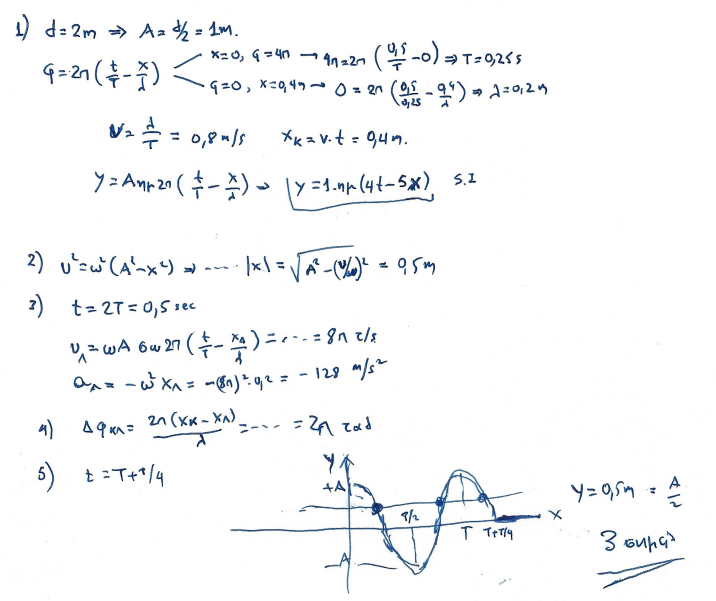 1) d=2m ⇒ A=d/2=1m.
φ=2π(t/T-x/λ) x=0, φ=4π → 4π=2π(0,5/T-0) ⇒ T=0,25s
φ=0, x=0,4m → 0=2π(0,5/0,25-0,4/λ) ⇒ λ=0,2m
υ=λ/T=0,8m/s xκ=v·t=0,4m.
y=Aημ2π(t/T-x/λ) ⇒ y=1.ημ(4t-5x) S.I
2) υ²=ω²(A²-x²) ⇒ ---- |x|=√A²-(υ/ω)²=0,5m
3) t=2T=0,5sec
υΛ=ωA συν2π(t/T-xΛ/λ)=---=8π r/s
aΛ=-ω²xΛ=-(8π)²·0,2=-128 m/s²
4) ΔφκΛ=2π(xκ-xΛ)/λ=----=2π rad
5) t=T+T/4
y
+A
-A
T/2
T
T+T/4
x
y=0,5m=A/2
3 σημεία